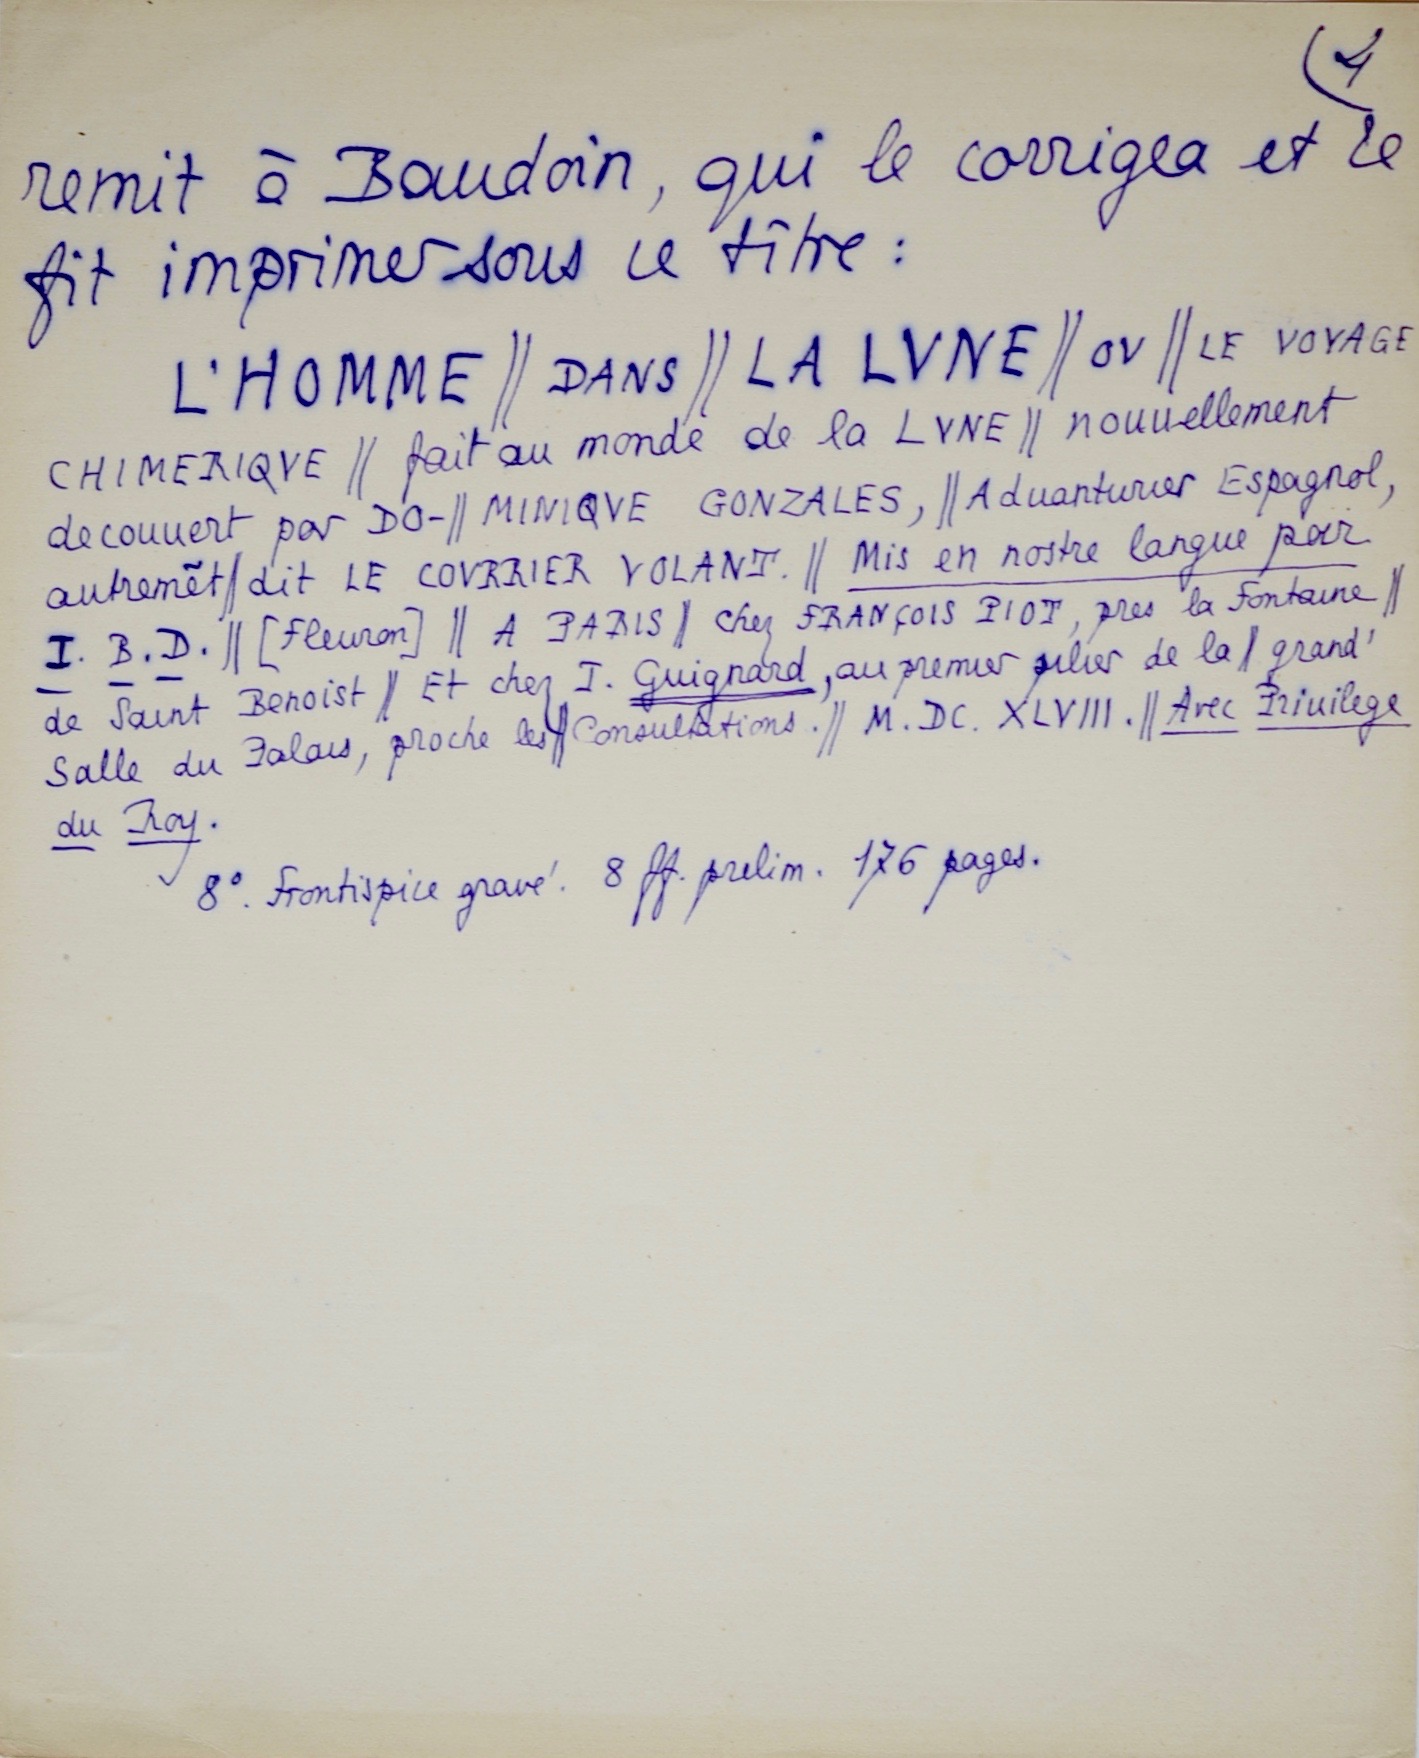 (4
remit à Baudoin, qui le corrigea et le
fit imprimer sous ce tître :
L'HOMME // DANS // LA LVNE // OV // LE VOYAGE
CHIMERIQVE // fait au monde de la LVNE // nouuellement
decouuert par DO-// MINIQVE GONZALES, // Aduanturier Espagnol,
autremẽt // dit LE COVRRIER VOLANT. // Mis en nostre langue par
I. B. D. // [Fleuron] // A PARIS // chez FRANÇOIS PIOT, pres la Fontaine //
de Saint Benoist // Et chez I. Guignard, au premier pilier de la // grand'
Salle du Palais, proche les // Consultations. // M. DC. XLVIII. // Avec Priuilege
du Roy.
8°. Frontispice gravé. 8 ff. prelim. 176 pages.